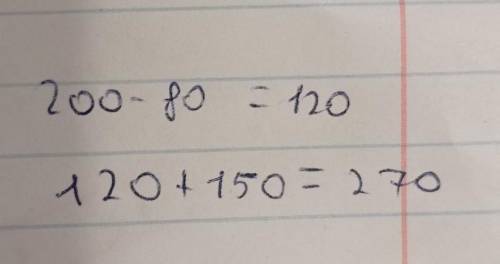 200 - 80 = 120
120 + 150 = 270